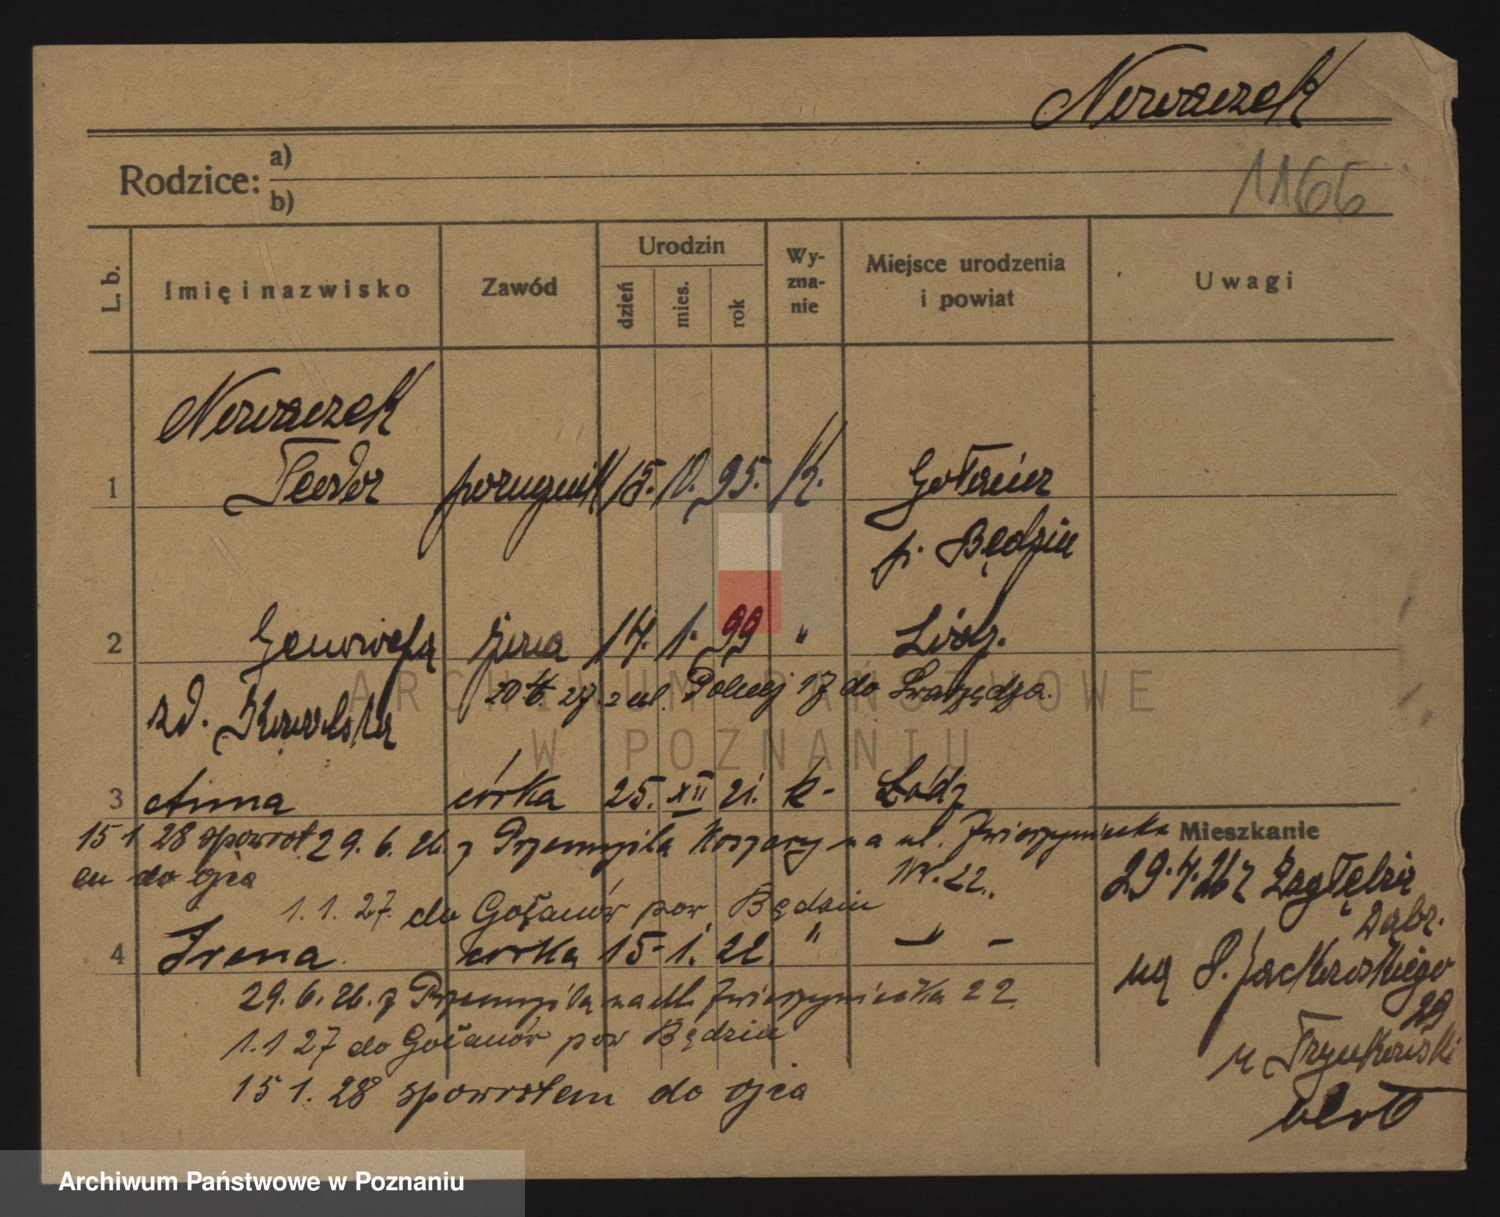 Nowaczek
1166
Rodzice: a)
b)
L. b.
Imię i nazwisko
Zawód
Urodzin
dzień
mies.
rok
Wy-
zna-
nie
Miejsce urodzenia
i powiat
Uwagi
Nowaczek
1 Teodor porucznik 15. 10. 95. K. Gołaicz
p. Będzin
2 Genowefa żona 14. 1. 99 " Łódź.
20 27. z ul. Polnej 17 do
zd. Kowalska
3 Anna córka 25. XII 21. k- Łódź
15 1 28 spowrot 29. 6. 26. z Przemyśla Koszary na ul. Zwierzyniecka
em do ojca Nr. 22.
1. 1. 27. do Gołanów pow Będzin
4 Irena córka 15. 1. 22. " — " —
29. 6. 26. z Przemyśla na ul. Zwierzyniecka 22
1. 1 27 do Gołanów pow Będzin
15 1. 28 spowrotem do ojca
Mieszkanie
29. 4. 26 z Zagłębia
Dąbr.
na P. Jackowskiego
29
u
vert
ARCHIWUM PAŃSTWOWE
W POZNANIU
Archiwum Państwowe w Poznaniu